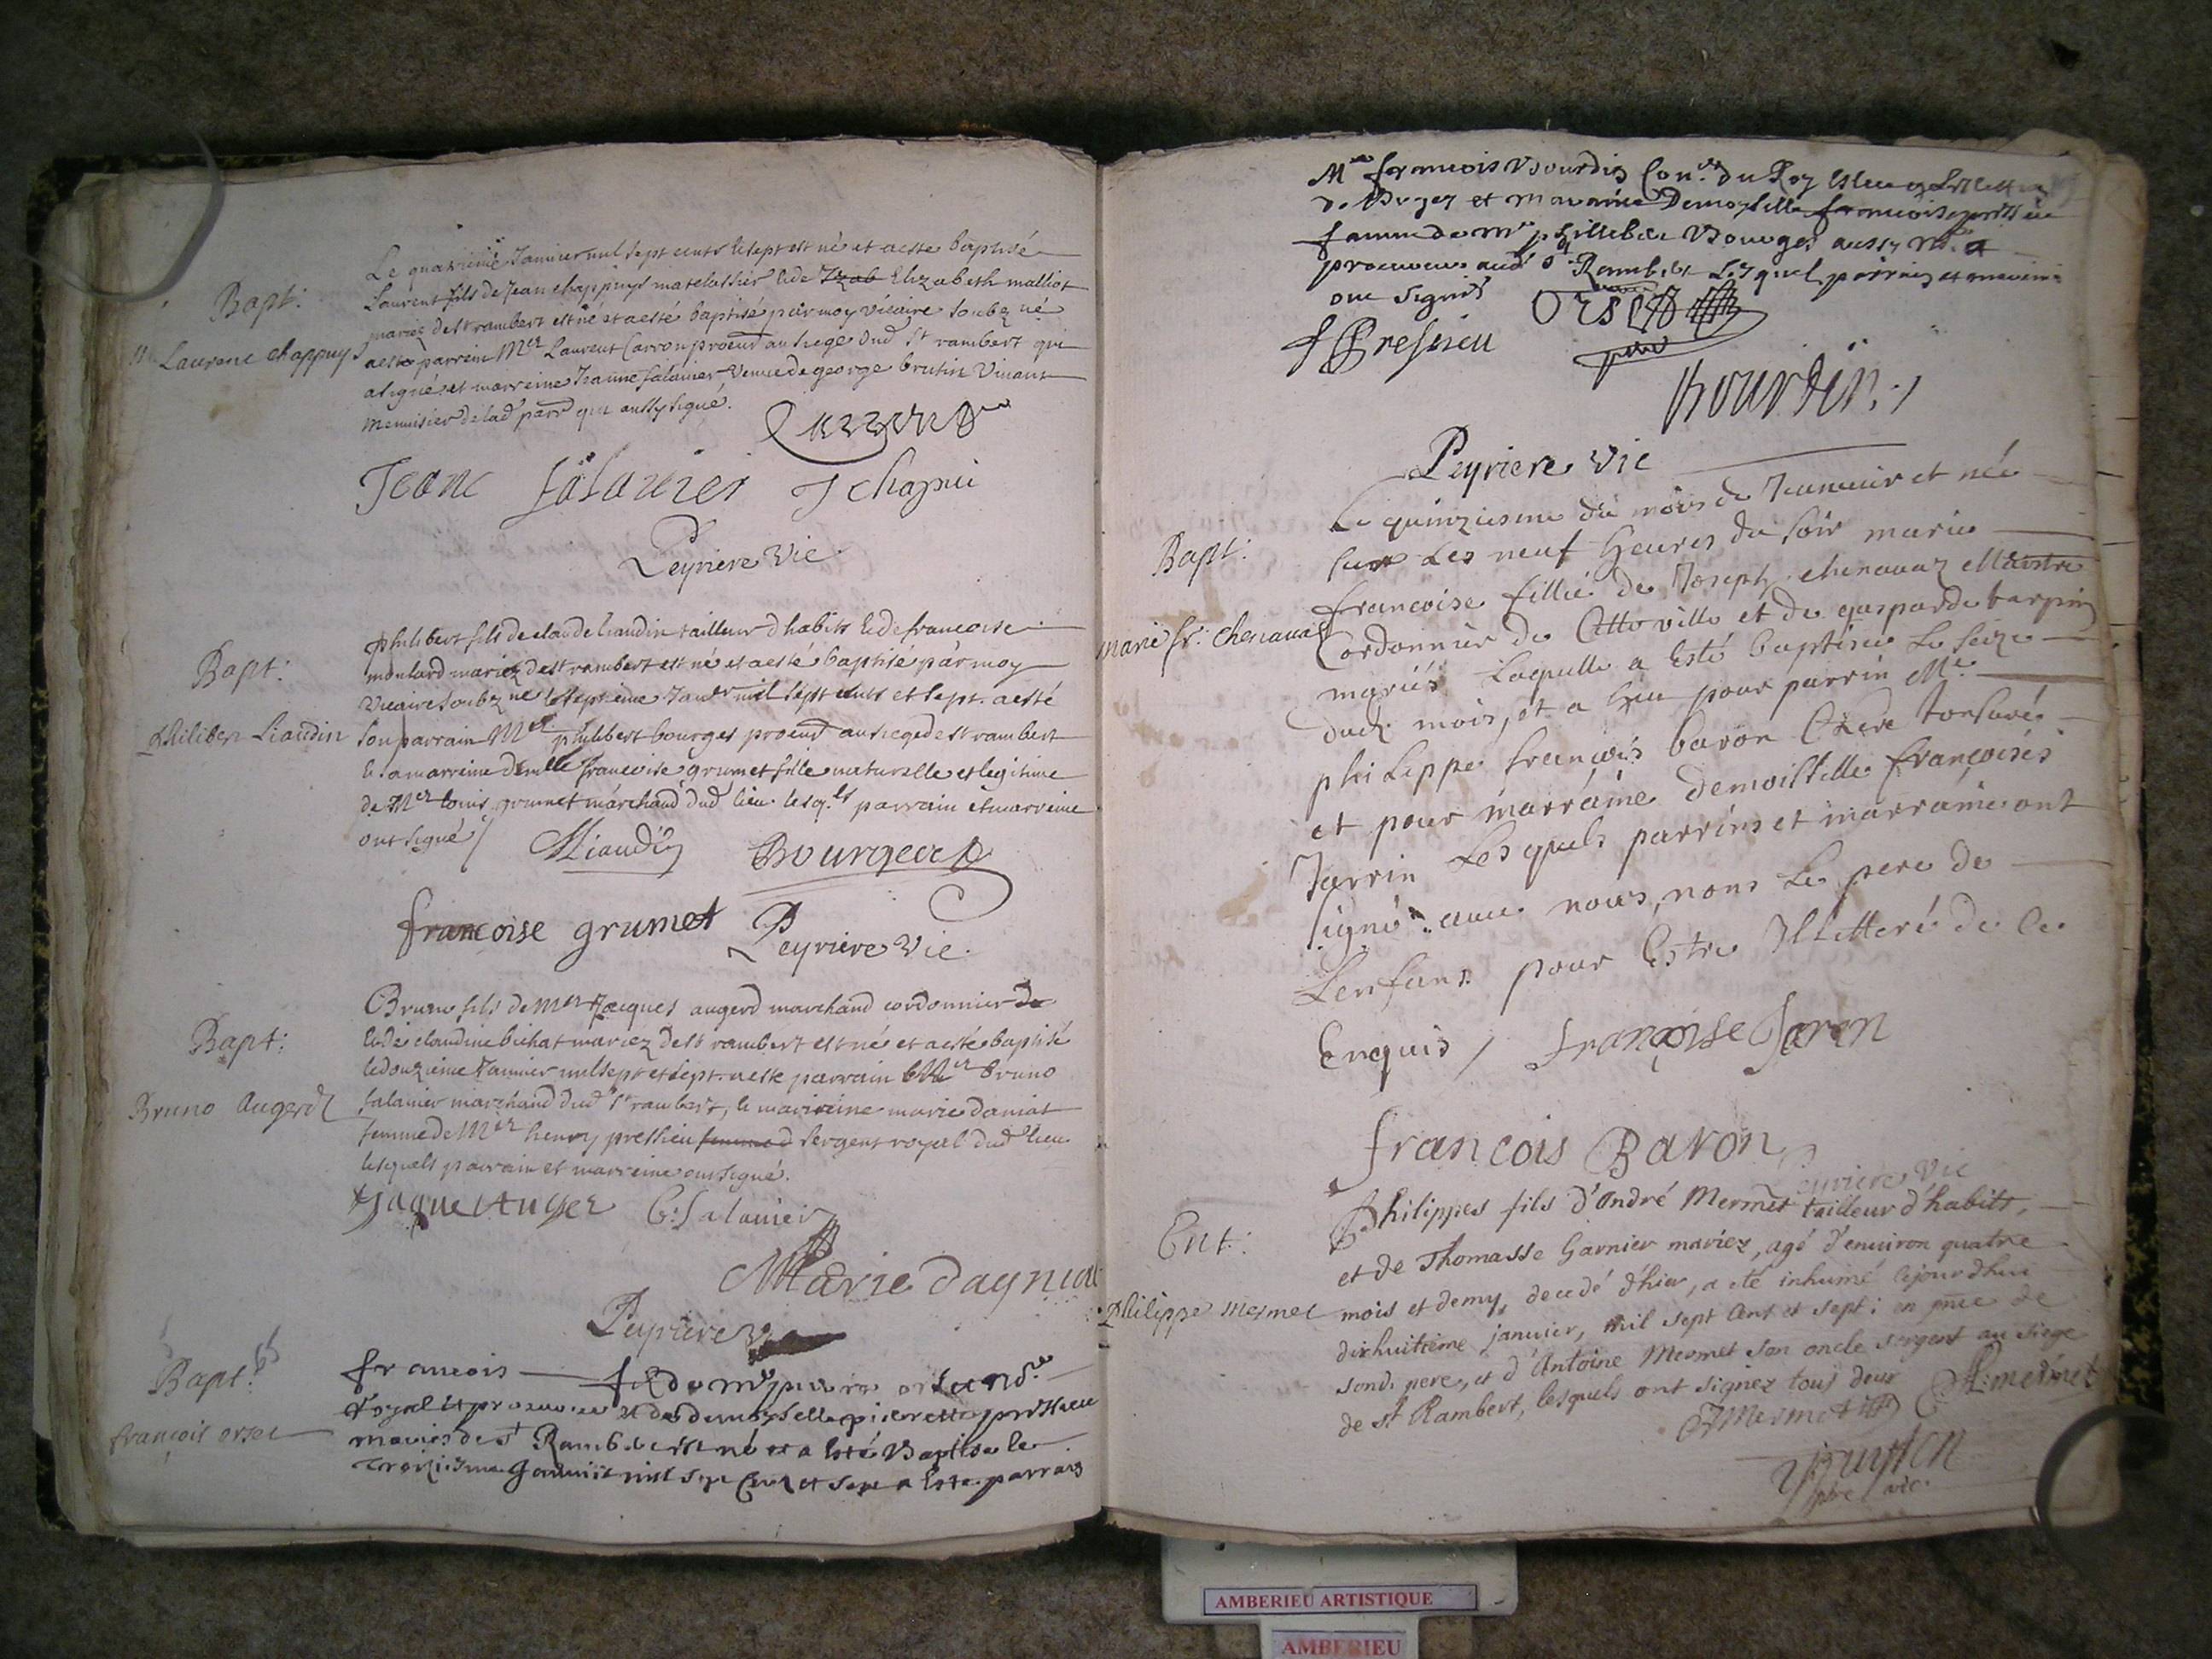 Bapt:
Laurent chappuy
Le quatrieme Janvier mil sept cents et sept est né et a esté baptisé
Laurent fils de Jean chappuys matelassier et de Izab Elizabeth malliot
mariez de st rambert est né et a esté baptisé par moy vicaire soubz né
a esté parrein Mer Laurent Carron procur au siege dud St rambert qui
a signé et marreine Jeanne salanier veuve de george brutin vivant
menuisier de lad parr qui aussy signé.
Jeane salanier J chapui
Peyriere vic
Bapt:
philibert Liaudin
philibert fils de claude liaudin tailleur d habits et de francoise
moulard mariez de st rambert est né et a esté baptisé par moy
vicaire soubz né le septieme Janvr mil sept cents et sept. a esté
son parrain Mer philibert bourges procur au siege de st rambert
et sa marreine dmlle francoise grumet fille naturelle et legitime
de Mer louis grumet marchand dud lieu lesq.ls parrain et marreine
ont signé /
Cliaudin Bourges
francoise grumet Peyriere vic.
Bapt:
Bruno Augerd
Bruno fils de Mer Jacques augerd marchand cordonnier de
et de claudine bichat mariez de st rambert est né et a esté baptisé
le douzieme Janvier mil sept et sept. a esté parrain Mer bruno
salanier marchand dud st rambert, et marreine marie daniat
femme de Mer henry pressieu femme d sergent royal dud lieu
lesquels parrain et marreine ont signé.
Jaque Auger B: salanier
Marie dagniat
Peyriere
Bapt:
françois orset
francois fils de mre pierre orset nore
Royal et procureur et de demoyselle pierrette pressieu
mariés de st Rambert est né et a esté Baptisé le
troiziesme Janvier mil sept Cent et sept a esté parrain
Mre francois Bourdin Coner du Roy esleu en l'election
de Bugey et maraine Demoyselle francoise pressieu
famme de mre phillibert Bourges aussy nre et
procureur aud st Rambert Lesquels parrain et maraine
ont signés
Orset
f Pressieu
Bourdin
Peyriere vic
Bapt:
marie fr: chenavaz
Le quinziesme du mois de Janvier et née
sur Les neuf heures du soir marie
francoise fillie de Joseph chenavaz Maistre
Cordonnier de Cette ville et de gasparde tarpin
mariés Laquelle a Esté baptisée Le seize
dud. mois, et a heu pour parrin Mr
philippe françois baron Clerc tonsuré
et pour marraine demoiselle françoise
Jarrin Lesquels parrins et marraine ont
signé avec nous, nons Le pere de
Lenfant pour Estre Illitteré de Ce
Enquis / françoise Jaren
francois Baron
Peyriere vic
Ent:
Philippe mermet
Philippes fils d'André Mermet tailleur d'habits,
et de Thomasse Garnier mariez, agé d'environ quatre
mois et demy, decedé d'hier, a eté inhumé cejourdhui
dixhuitieme janvier, mil sept cent et sept; en pnce de
sond. pere, et d'Antoine Mermet son oncle sergent au siege
de st Rambert, lesquels ont signez tous deux
A Mermet A: mermet
pbre vic.
AMBERIEU ARTISTIQUE
AMBERIEU